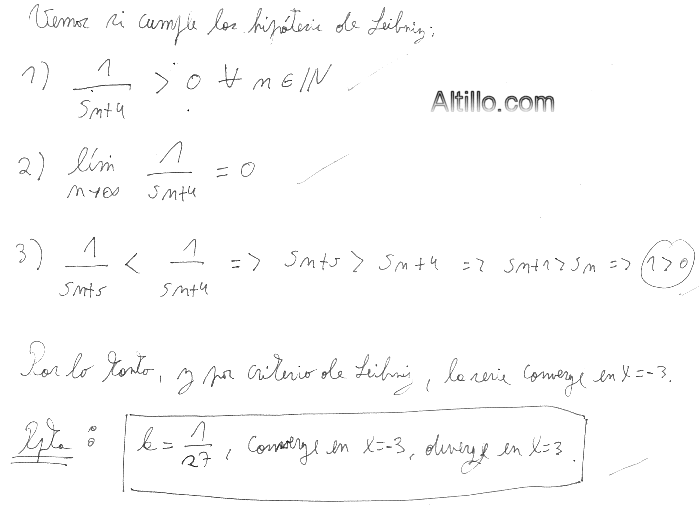 Vemos si cumple las hipótesis de Leibniz:
1) 1/(5n+4) > 0 ∀ n ∈ IN
Altillo.com
2) lím n→∞ 1/(5n+4) = 0
3) 1/(5n+5) < 1/(5n+4) => 5n+5 > 5n+4 => 5n+1 > 5n => 1>0
Por lo tanto, y por criterio de Leibniz, la serie converge en X=-3.
Rpta: k = 1/27, converge en X=-3, diverge en X=3.